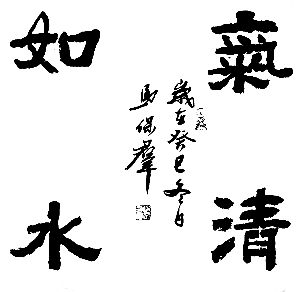 氣清
如水
歲在癸巳冬日
馬保群